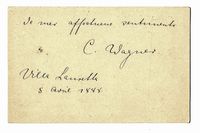 de mes affectueux sentiments
C. Wagner
Villa
8 avril 1888